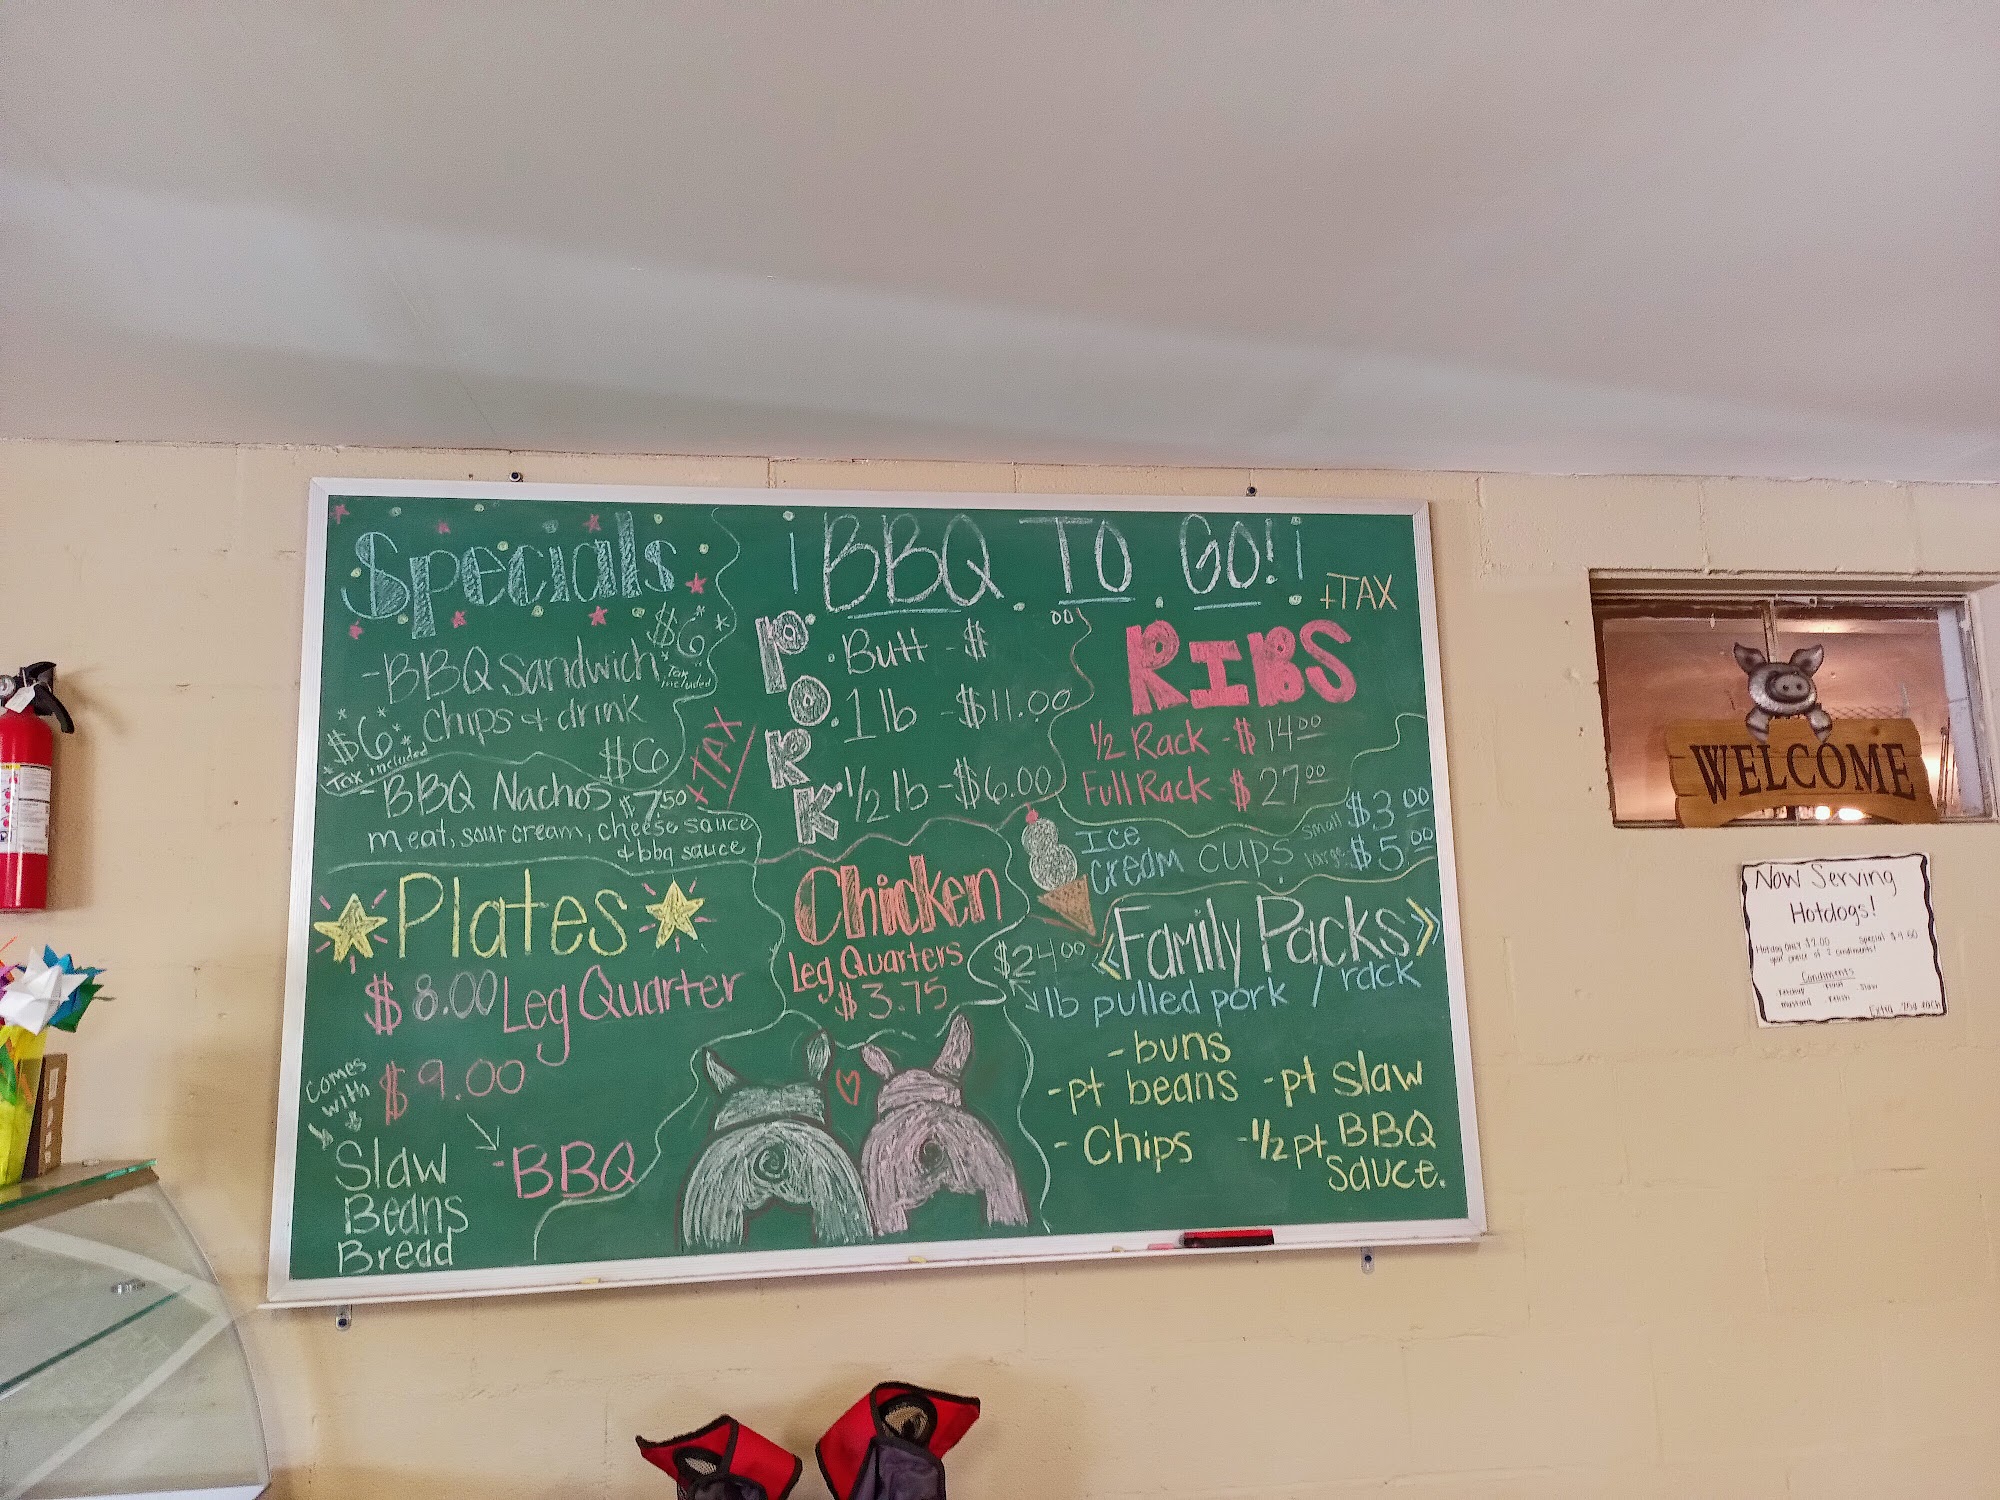 Specials
$6
-BBQ Sandwich
Tax included
Chips & drink
$6
Tax included
$6
-BBQ Nachos $7.50
+TAX
meat, sour cream, cheese sauce
& bbq sauce
Plates
$8.00 Leg Quarter
$9.00
-BBQ
comes
with
Slaw
Beans
Bread
BBQ TO GO!
+TAX
PORK
Butt - $
00
1 lb - $11.00
1/2 lb - $6.00
RIBS
1/2 Rack - $14.00
Full Rack - $27.00
Chicken
Leg Quarters
$3.75
Ice
cream cups
small $3.00
large $5.00
Family Packs
$24.00
1lb pulled pork / rack
-buns
-pt beans -pt slaw
-Chips -1/2 pt BBQ
sauce.
WELCOME
Now Serving
Hotdogs!
Hotdog ONLY $2.00
Special
your choice of 2 condiments!
Condiments
Ketchup
Slaw
Mustard
Relish
Extra .25¢ each